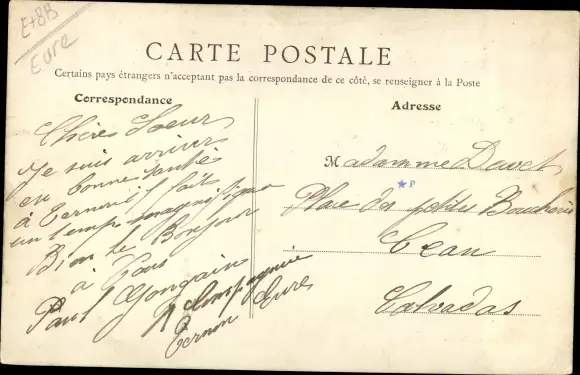 E+BB
Eure
CARTE POSTALE
Certains pays étrangers n'acceptant pas la correspondance de ce côté, se renseigner à la Poste
Correspondance
Adresse
Chères Soeur
Je suis arriver
en bonne santé
à Vernon il fait
un temps magnifique
Bien le Bonjour
à Vous
Paul
Compagnie
Vernon Eure
Madamme Davet
P
Place des petites Boucherie
Calvados